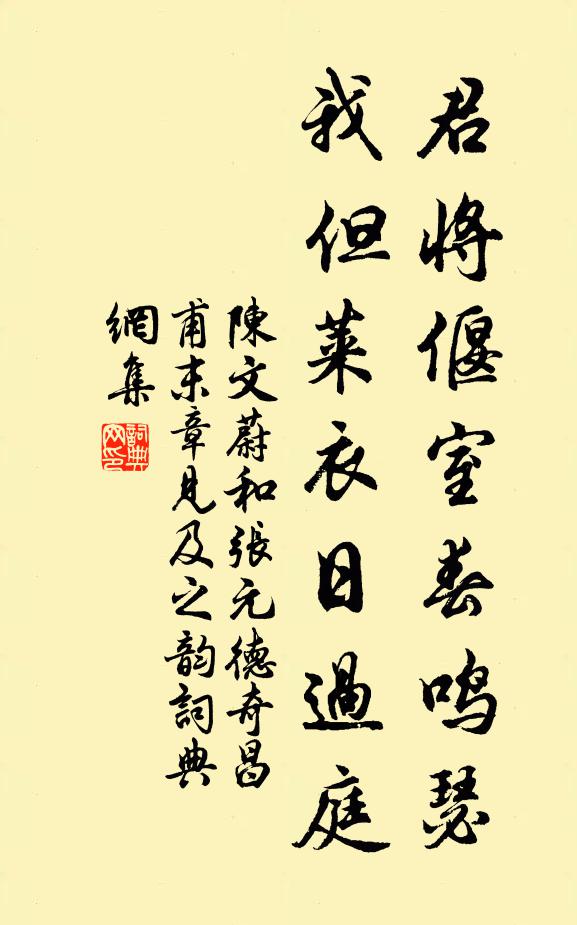 君將偃室春鳴瑟
我但萊衣日過庭
陳文蔚和張元德寄昌
甫末章見及之韵詞典
網集
詞典網印